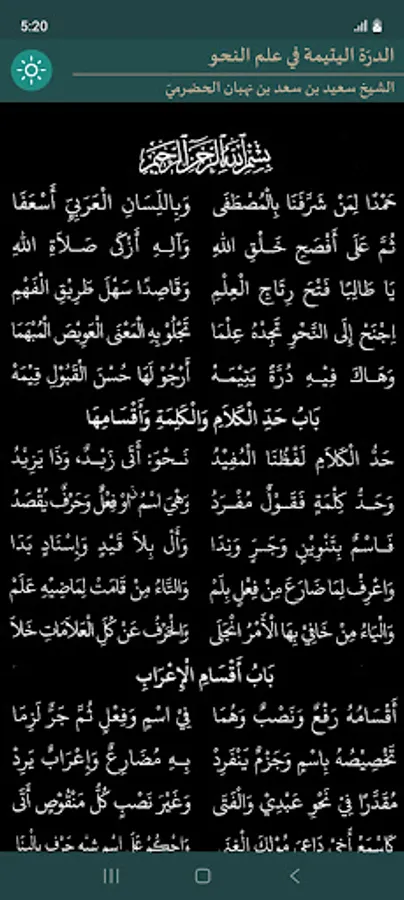 5:20
الدرّة اليتيمة في علم النحو
الشيخ سعيد بن سعد بن نبهان الحضرمي
بِسْمِ اللَّهِ الرَّحْمَنِ الرَّحِيمِ
حَمْدًا لِمَنْ شَرَّفَنَا بِالْمُصْطَفَى وَبِاللِّسَانِ الْعَرَبِيِّ أَسْعَفَا
ثُمَّ عَلَى أَفْصَحِ خَلْقِ اللهِ وَآلِهِ أَزْكَى صَلَاةِ اللهِ
يَا طَالِبًا فَتْحَ رِتَاجِ الْعِلْمِ وَقَاصِدًا سَهْلَ طَرِيقِ الْفَهْمِ
اِجْنَحْ إِلَى النَّحْوِ تَجِدْهُ عِلْمَا تَجْلُو بِهِ الْمَعْنَى الْعَوِيصَ الْمُبْهَمَا
وَهَاكَ فِيهِ دُرَّةً يَتِيمَهْ أَرْجُو لَهَا حُسْنَ الْقَبُولِ قِيمَهْ
بَابُ حَدِّ الْكَلَامِ وَالْكَلِمَةِ وَأَقْسَامِهَا
حَدُّ الْكَلَامِ لَفْظُنَا الْمُفِيدُ نَحْوُ: أَتَى زَيْدٌ، وَذَا يَزِيدُ
وَحَدُّ كِلْمَةٍ فَقَوْلٌ مُفْرَدُ وَهْيَ اسْمٌ اوْ فِعْلٌ وَحَرْفٌ يُقْصَدُ
فَاسْمٌ بِتَنْوِينٍ وَجَرٍّ وَنِدَا وَأَلْ بِلَا قَيْدٍ وَإِسْنَادٍ بَدَا
وَاعْرِفْ لِمَا ضَارَعَ مِنْ فِعْلٍ بِلَمْ وَالتَّاءُ مِنْ قَامَتْ لِمَاضِيهِ عَلَمْ
وَالْيَاءُ مِنْ خَافِي بِهَا الْأَمْرُ انْجَلَى وَالْحَرْفُ عَنْ كُلِّ الْعَلَامَاتِ خَلَا
بَابُ أَقْسَامِ الْإِعْرَابِ
أَقْسَامُهُ رَفْعٌ وَنَصْبٌ وَهُمَا فِي اسْمٍ وَفِعْلٍ ثُمَّ جَرٌّ لَزِمَا
تَخْصِيصُهُ بِاسْمٍ وَجَزْمٌ يَنْفَرِدْ بِهِ مُضَارِعٌ وَإِعْرَابٌ يَرِدْ
مُقَدَّرًا فِي نَحْوِ عَبْدِي وَالْفَتَى وَغَيْرَ نَصْبٍ كُلُّ مَنْقُوصٍ أَتَى
كَاسْمَعْ أَخِي دَاعِيَ مُولِكَ الْغِنَى وَاحْكُمْ عَلَى اسْمٍ شِبْهِ حَرْفٍ بِالْبِنَا